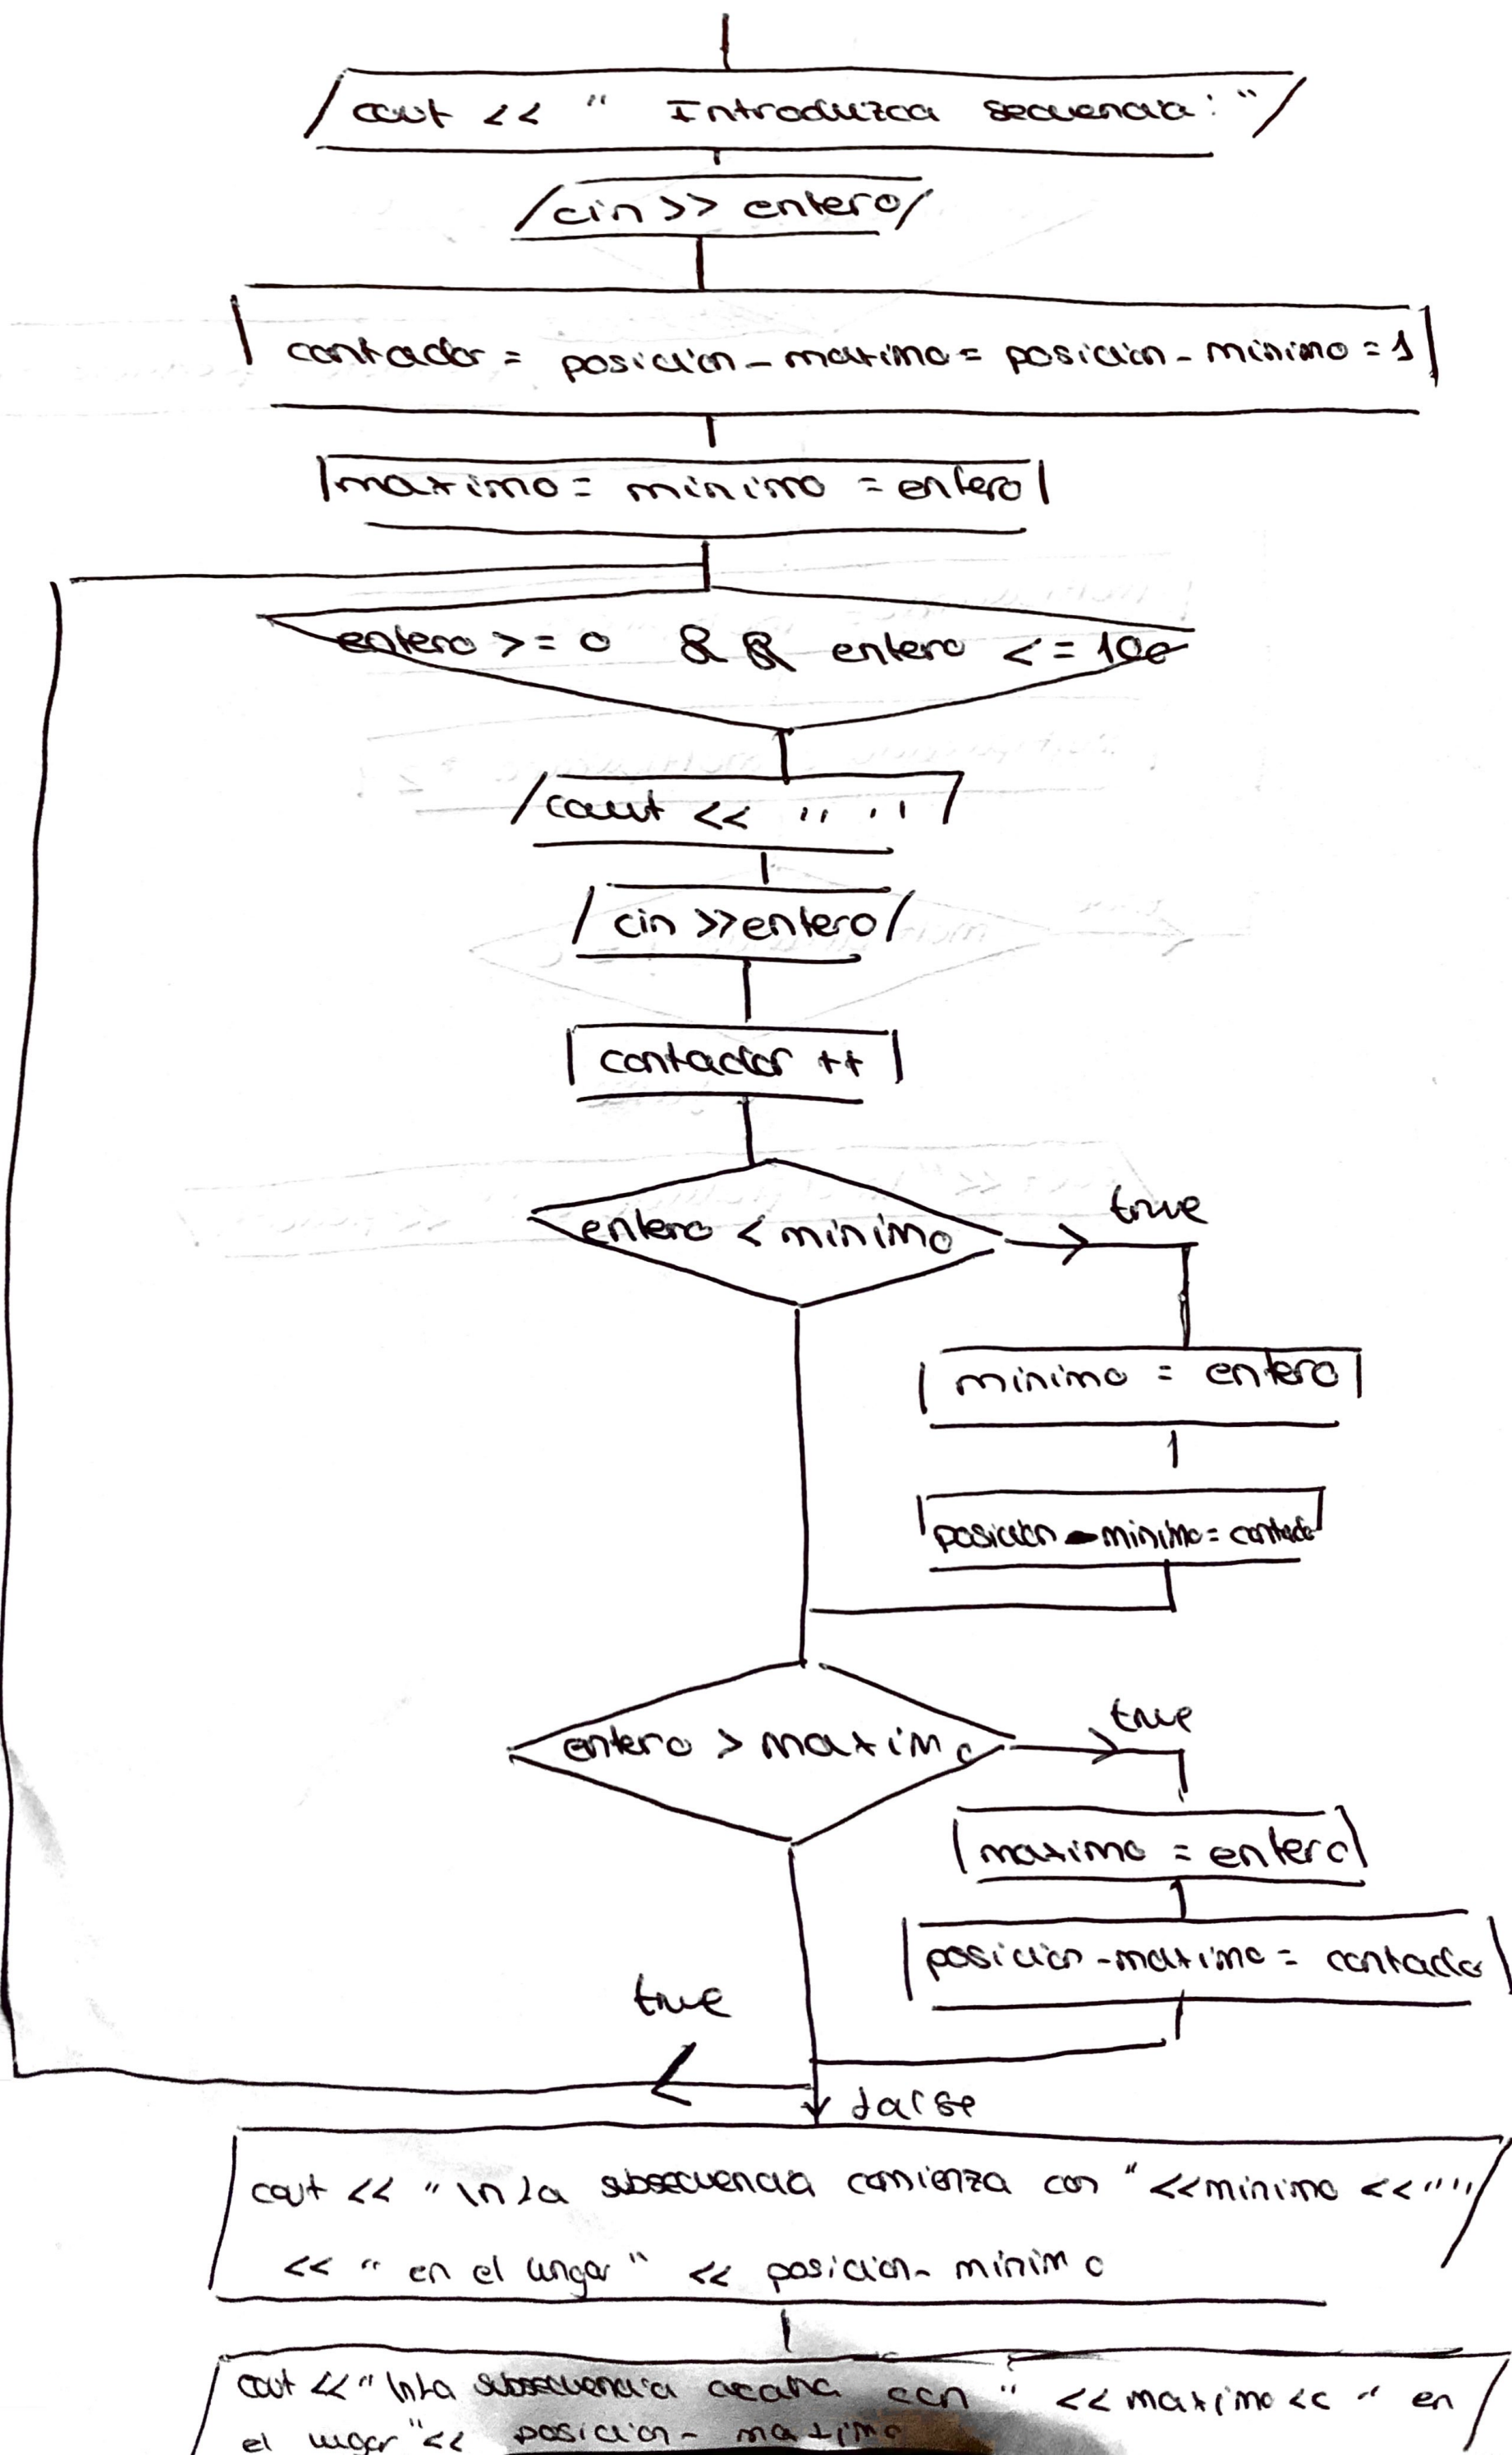 cout << " Introduzca secuencia: "
cin >> entero
contador = posicion_maximo = posicion_minimo = 1
maximo = minimo = entero
entero >= 0 && entero <= 100
cout << " "
cin >> entero
contador ++
entero < minimo
true
minimo = entero
posicion_minimo = contador
entero > maximo
true
maximo = entero
posicion_maximo = contador
true
false
cout << "\nLa subsecuencia comienza con " << minimo << " "
<< " en el lugar " << posicion_minimo
cout << "\nLa subsecuencia acaba con " << maximo << " en
el lugar " << posicion_maximo